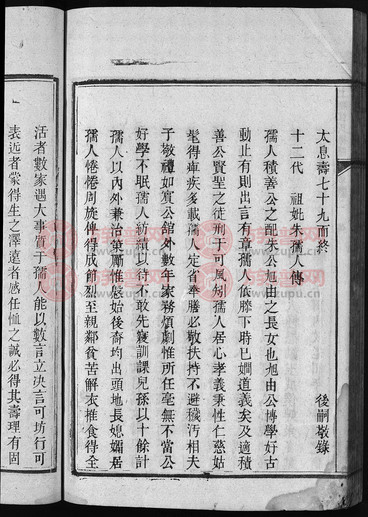 太息壽七十九而終
後嗣敬錄
十二代 祖妣朱孺人傳
孺人積善公之配朱公旭由之長女也旭由公博學好古
動止有則出言有章孺人依膝下時已嫻道義矣及適積
善公賢聖之徒刑于可風矧孺人居心孝義秉性仁慈姑
耄得痺疾多載孺人定省舉膳必敬扶持不避穢汚相夫
子敬禮如賓公館外數年家務煩劇惟所任毫無不當公
好學不眠孺人紡績以待不敢先寢訓課兒孫以十餘計
孺人以內外兼治策厲惟慇始後裔均出頭地長媳孀居
孺人惓惓周旋俾得成節烈至親鄰貧苦解衣推食得全
活者數家遇大事質于孺人能以數言立決言可坊行可
表近者蒙得生之澤遠者感任恤之誠必得其壽理有固